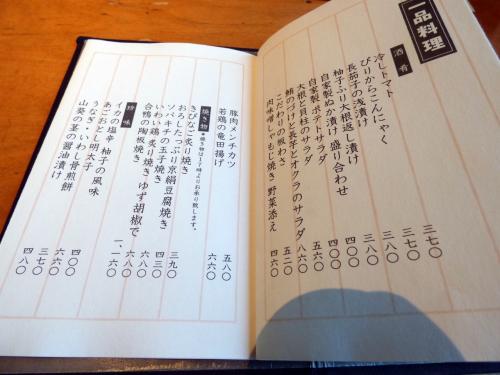 一品料理
酒肴
冷しトマト 三七〇
ぴりからこんにゃく 三七〇
長茄子の浅漬け 三八〇
柚子ふり大根返し漬け 四八〇
自家製ぬか漬け 盛り合わせ
自家製ポテトサラダ
大根と貝柱のサラダ 五六〇
鮪のづけと長芋とオクラのサラダ 八六〇
こだわりの板わさ 五二〇
肉味噌しのもじ焼き 野菜添え 四六〇
豚肉メンチカツ 五八〇
若鶏の竜田揚げ 六六〇
焼き物 ●焼き物は17時よりお承り致します。
きびなご炙り焼き
おろしたっぷり京絹豆腐焼き 三九〇
ソーキチの玉子焼き 四三〇
いわい鶏 炙り焼き ゆず胡椒で 六八〇
合鴨の陶板焼き 一、一六〇
珍味
イカの塩辛 柚子の風味
あごおとし明太子
うなぎ・いわし骨煎餅 四〇〇
山葵の茎の醤油漬け 三七〇
四八〇